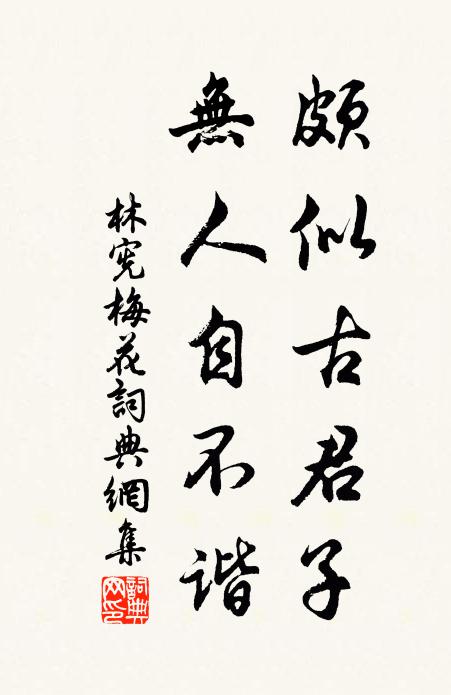 頗似古君子
無人自不谐
林憲梅花詞典網集
詞典網印